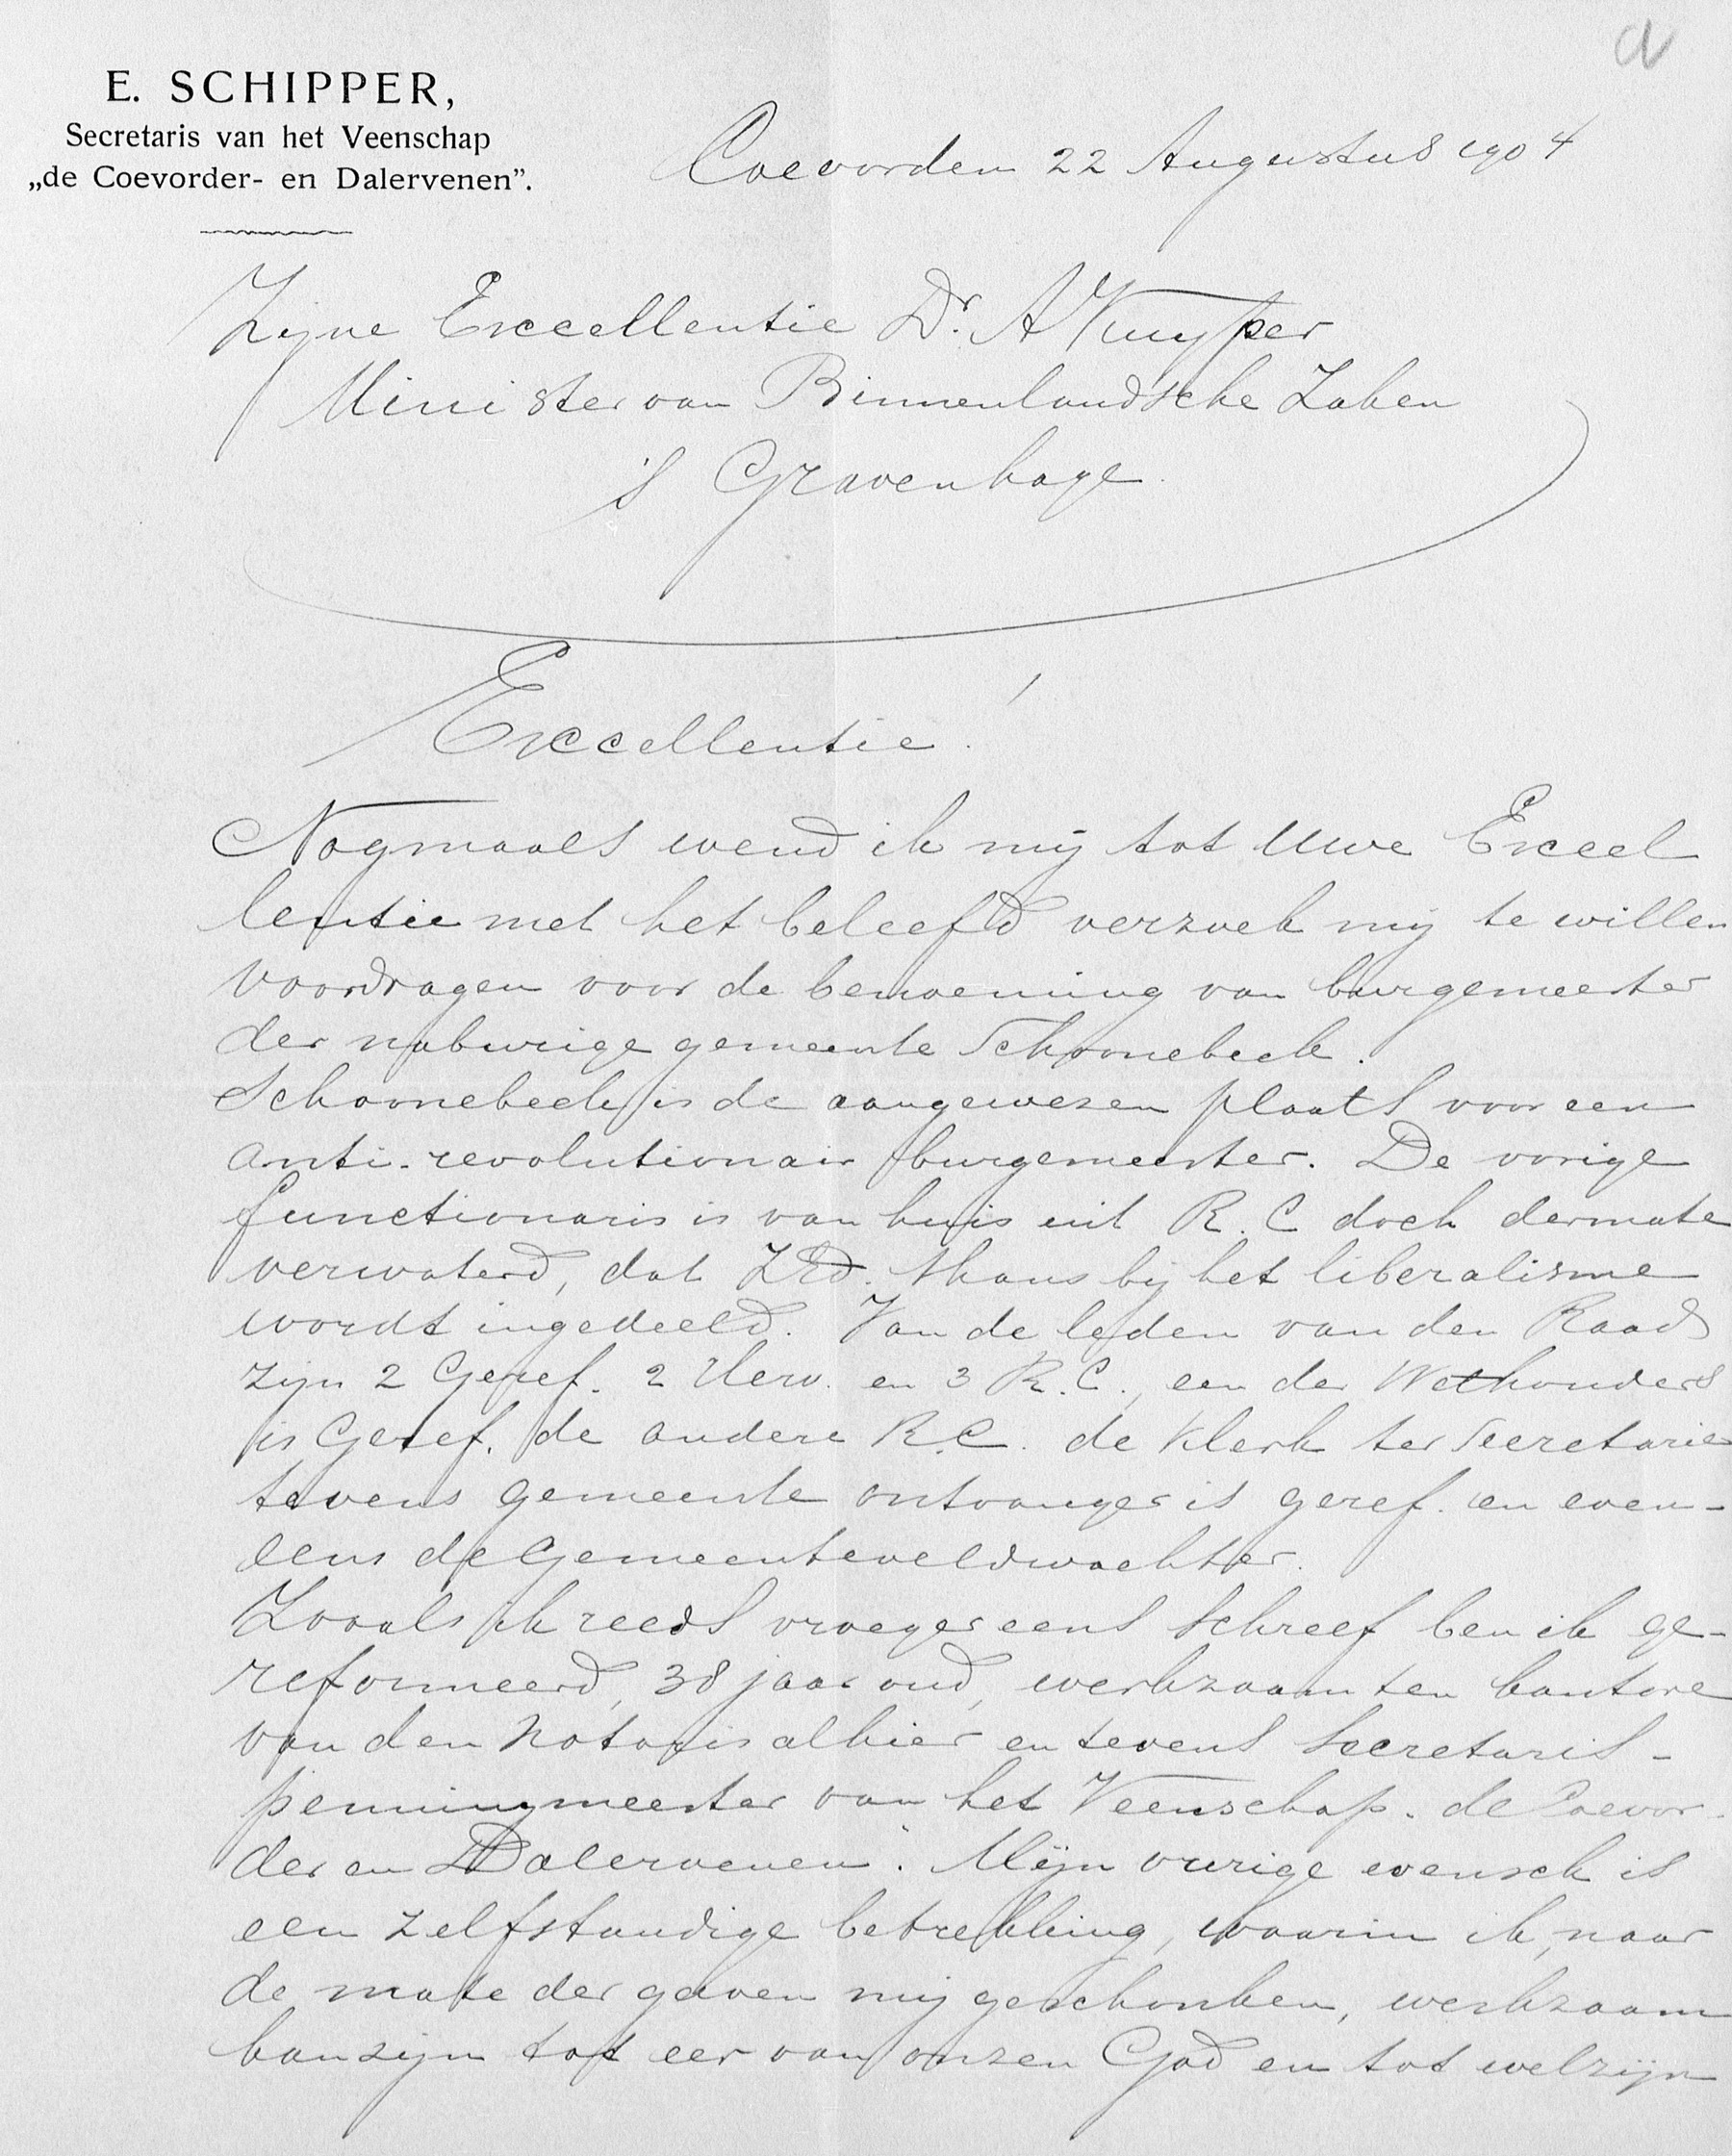 a
E. SCHIPPER,
Secretaris van het Veenschap
„de Coevorder- en Dalervenen”.
Coevorden 22 Augustus 1904
Zijne Excellentie Dr. A Kuyper
Minister van Binnenlandsche Zaken
's Gravenhage.
Excellentie!
Nogmaals wend ik mij tot Uwe Excel
lentie met het beleefd verzoek mij te willen
voordragen voor de benoeming van burgemeester
der naburige gemeente Schoonebeek.
Schoonebeek is de aangewezen plaats voor een
anti-revolutionair burgemeester. De vorige
functionaris is van huis uit R. C doch dermate
verwaterd, dat ZEd. thans bij het liberalisme
wordt ingedeeld. Van de leden van den Raad
zijn 2 Geref. 2 Herv. en 3 R.C., een der Wethouders
is Geref. de andere R.C. de klerk ter Secretarie
tevens gemeente ontvanger is geref. en even-
eens de Gemeenteveldwachter.
Zooals ik reeds vroeger eens schreef ben ik ge-
reformeerd, 38 jaar oud, werkzaam ten kantore
van den Notaris alhier en tevens Secretaris-
penningmeester van het Veenschap de Coevor-
der en Dalervenen". Mijn vurige wensch is
een zelfstandige betrekking, waarin ik, naar
de mate der gaven mij geschonken, werkzaam
kan zijn tot eer van onzen God en tot welzijn